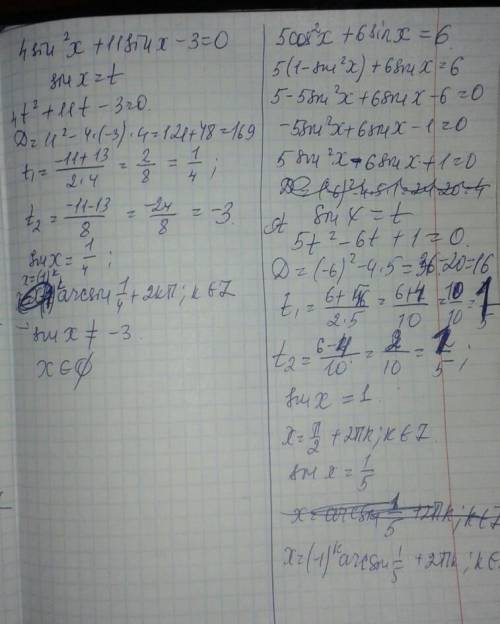 4sin²x + 11sinx - 3 = 0
sinx = t
4t² + 11t - 3 = 0.
D = 11² - 4·(-3)·4 = 121 + 48 = 169
t₁ = (-11+13)/(2·4) = 2/8 = 1/4 ;
t₂ = (-11-13)/8 = -24/8 = -3.
sinx = 1/4 ;
x = (-1)ᵏ arcsin 1/4 + 2kπ; k∈Z
sin x ≠ -3.
x ∈ ∅
5cos²x + 6sinx = 6.
5(1-sin²x) + 6sinx = 6
5 - 5sin²x + 6sinx - 6 = 0
-5sin²x + 6sinx - 1 = 0
5sin²x - 6sinx + 1 = 0
sin x = t
5t² - 6t + 1 = 0.
D = (-6)² - 4·5 = 36 - 20 = 16
t₁ = (6+4)/(2·5) = (6+4)/10 = 10/10 = 1
t₂ = (6-4)/10 = 2/10 = 1/5 ;
sin x = 1
x = π/2 + 2πk; k∈Z.
sin x = 1/5
x = arcsin 1/5 + 2πk; k∈Z
x = (-1)ᵏ arcsin 1/5 + 2πk; k∈